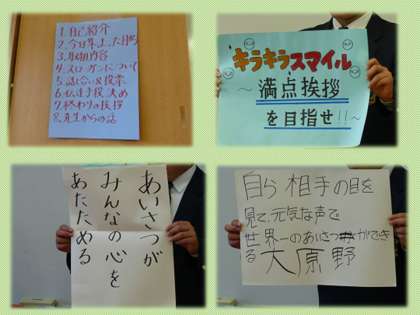 1.自己紹介
3.取組内容
4.スローガンについて
5.話し合い&投票
6.仏達子役決め
7.終わりの挨拶
8.先生からの話
キラキラスマイル
～満点挨拶
を目指せ!!～
あいさつが
みんなの心を
あたためる
自ら相手の目を
見て、元気な声で
世界一のあいさつができ
る大原野